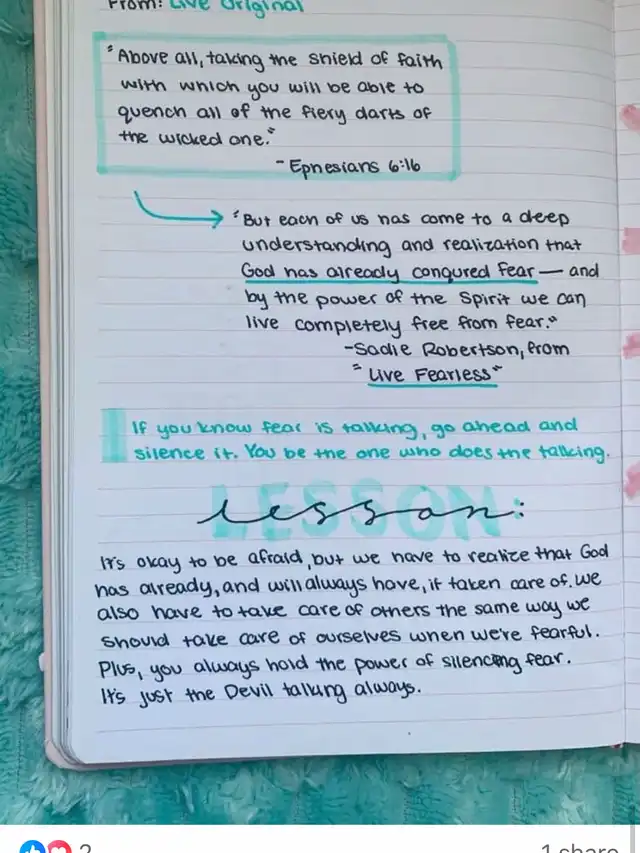 From: Live Original
"Above all, taking the shield of faith
with which you will be able to
quench all of the fiery darts of
the wicked one."
- Ephesians 6:16
"But each of us has come to a deep
understanding and realization that
God has already conqured fear — and
by the power of the Spirit we can
live completely free from fear."
-Sadie Robertson, from
"Live Fearless"
If you know fear is talking, go ahead and
silence it. You be the one who does the talking.
LESSON:
lesson:
It's okay to be afraid, but we have to realize that God
has already, and will always have, it taken care of. We
also have to take care of others the same way we
should take care of ourselves when we're fearful.
Plus, you always hold the power of silencing fear.
It's just the Devil talking always.
2
1 share